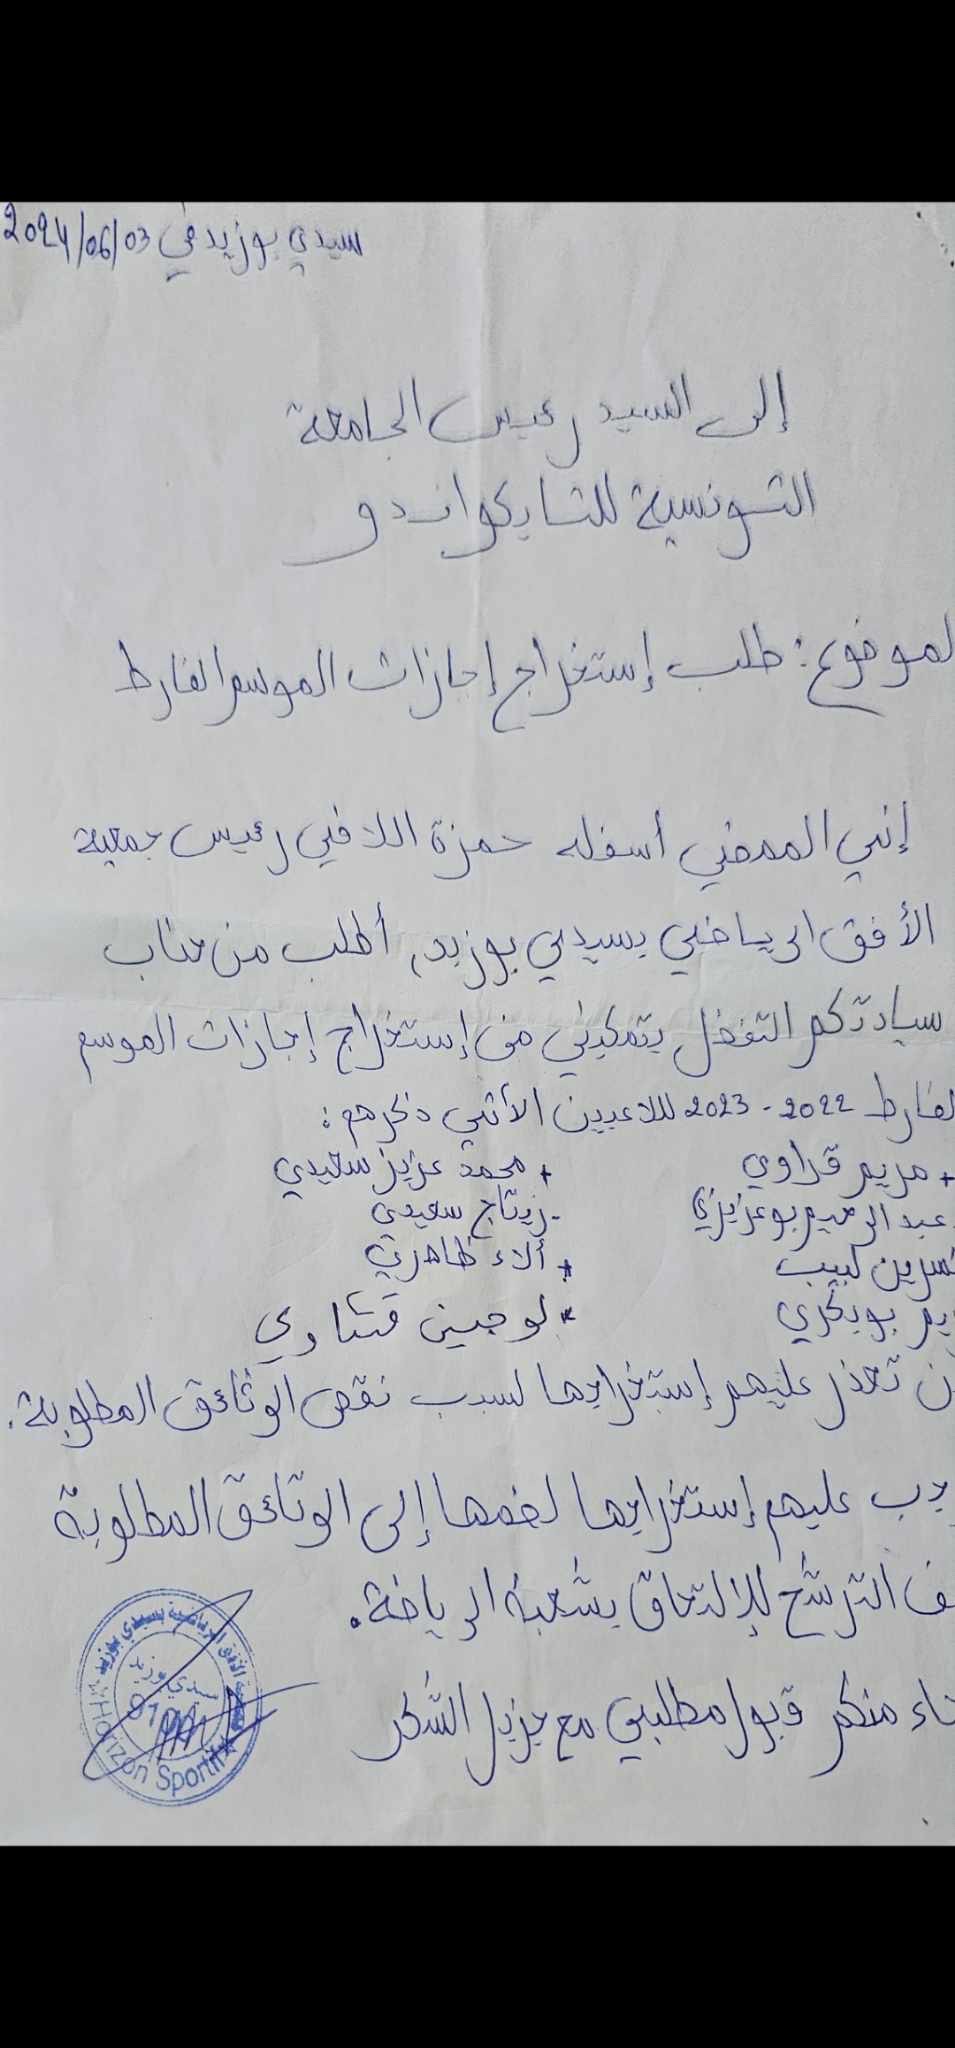 سيدي بوزيد في 2024/06/03
إلى السيد رئيس الجامعة
التونسية للتايكواندو
لموضوع: طلب إستخراج إجازات الموسم الفارط
إنني الممضي أسفله حمزة اللافي رئيس جمعية
الأفق الرياضي بسيدي بوزيد، أطلب من جناب
سيادتكم التفضل بتمكيني من إستخراج إجازات الموسم
لفارط 2022 - 2023 لللاعبين الآتي ذكرهم:
+ مريم قراوي + محمد عزيز سعيدي
عبد الرحيم بوعزيزي - زيتاج سعيدي
نسرين لبيب * ألاء ظاهري
يم بوبكري * لوجين قشاوي
ن تعذر عليهم إستخراجها لسبب نقص الوثائق المطلوبة.
يجب عليهم إستخراجها لضمها إلى الوثائق المطلوبة
ف الترشح للإلتحاق بشعبة الرياضة.
جاء منكم قبول مطلبي مع جزيل الشكر
الأفق الرياضية بسيدي بوزيد
سيدي بوزيد
9100
Horizon Sportif